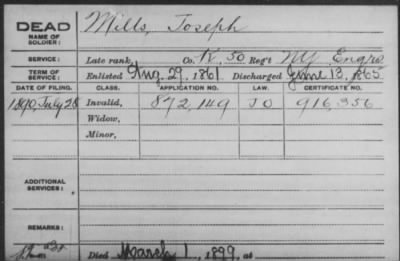 DEAD
NAME OF SOLDIER:
Mills, Joseph
SERVICE: Late rank, Co. K, 50 Reg't NY Engrs
TERM OF SERVICE: Enlisted Aug. 29, 1861 Discharged June 13, 1865
DATE OF FILING. CLASS. APPLICATION NO. LAW. CERTIFICATE NO.
1890, July 28 Invalid, 872,149 JO 916,356
Widow,
Minor,
ADDITIONAL SERVICES:
REMARKS:
Died March 1, 1899, at